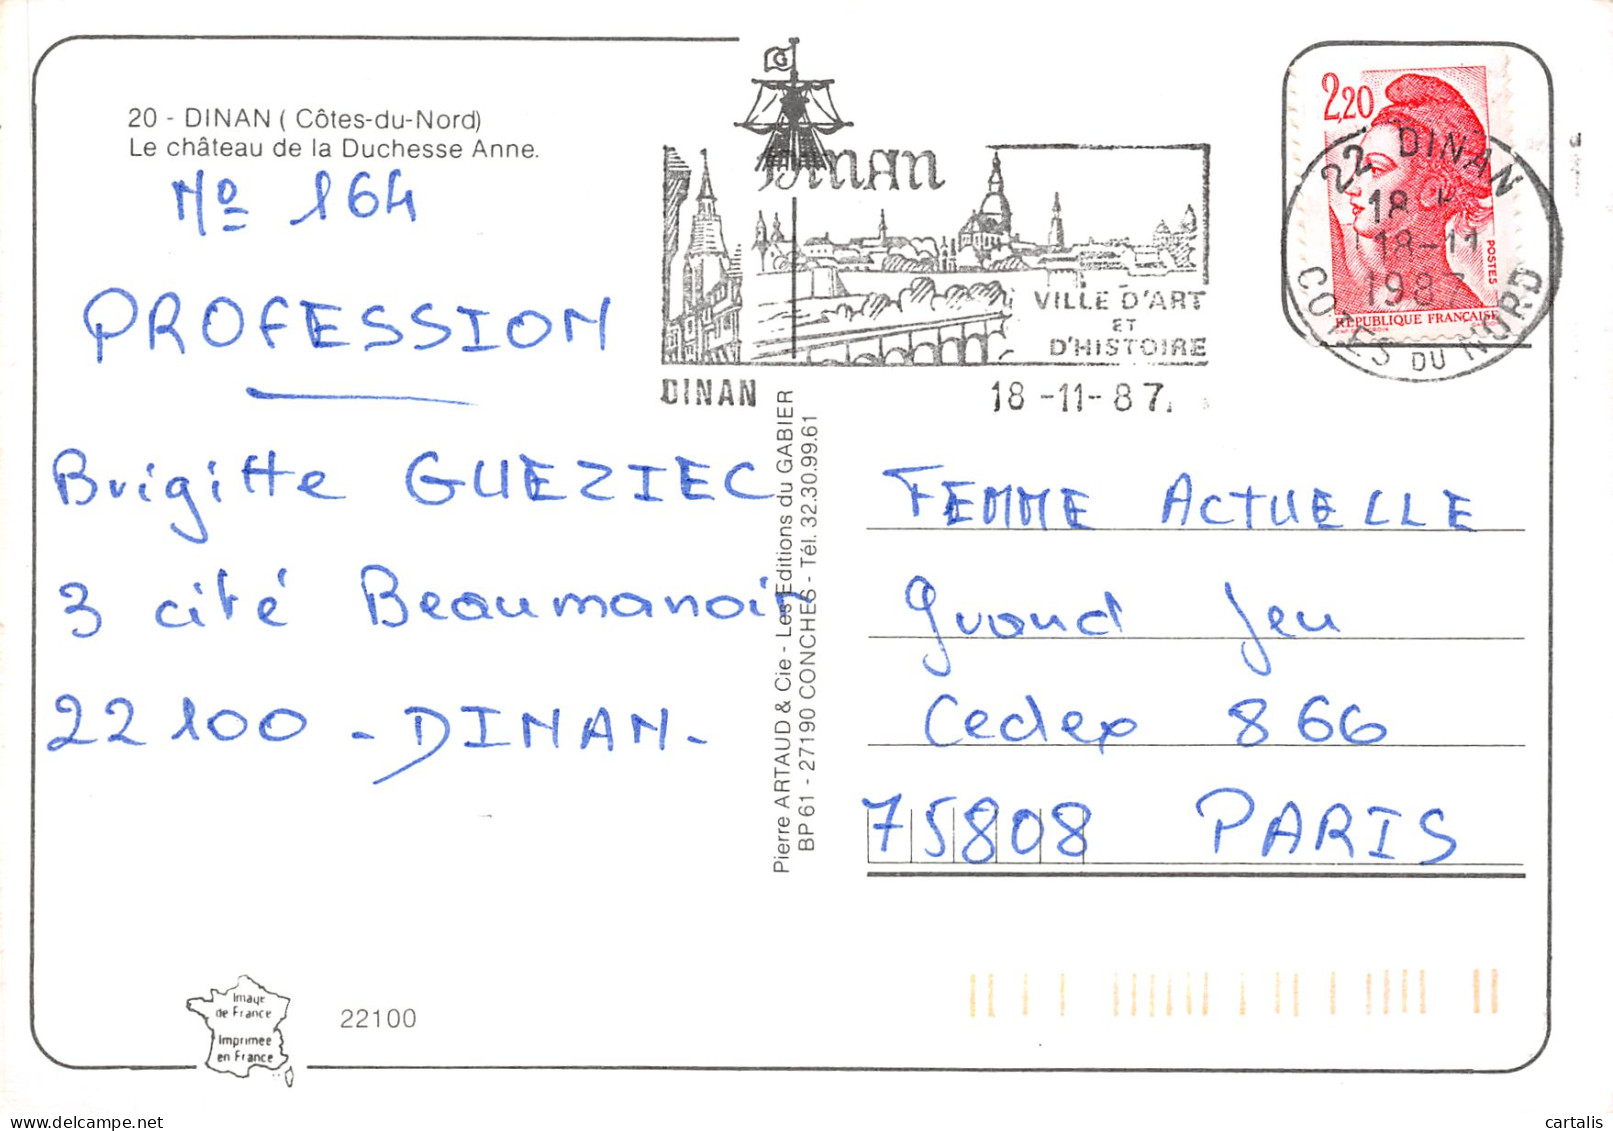 20 - DINAN ( Côtes-du-Nord)
Le château de la Duchesse Anne.
Nº 164
PROFESSION
Brigitte GUEZIEC
3 cité Beaumanoir
22100 - DINAN -
Image
de France
Imprimée
en France
22100
Pierre ARTAUD & Cie - Les Editions du GABIER
BP 61 - 27190 CONCHES - Tél. 32.30.99.61
G
DINAN
VILLE D'ART
ET
D'HISTOIRE
DINAN
18-11-87
2,20
POSTES
REPUBLIQUE FRANÇAISE
22 DINAN
18 H
18-11
1987
COTES DU NORD
FEMME ACTUELLE
Grand Jeu
Cedex 866
75808 PARIS
delcampe.net
cartalis